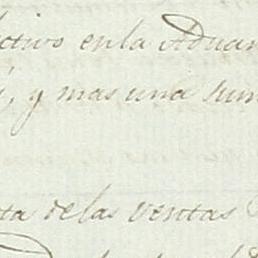 ctivo enla Aduan
, y mas una sum
ta delas ventas